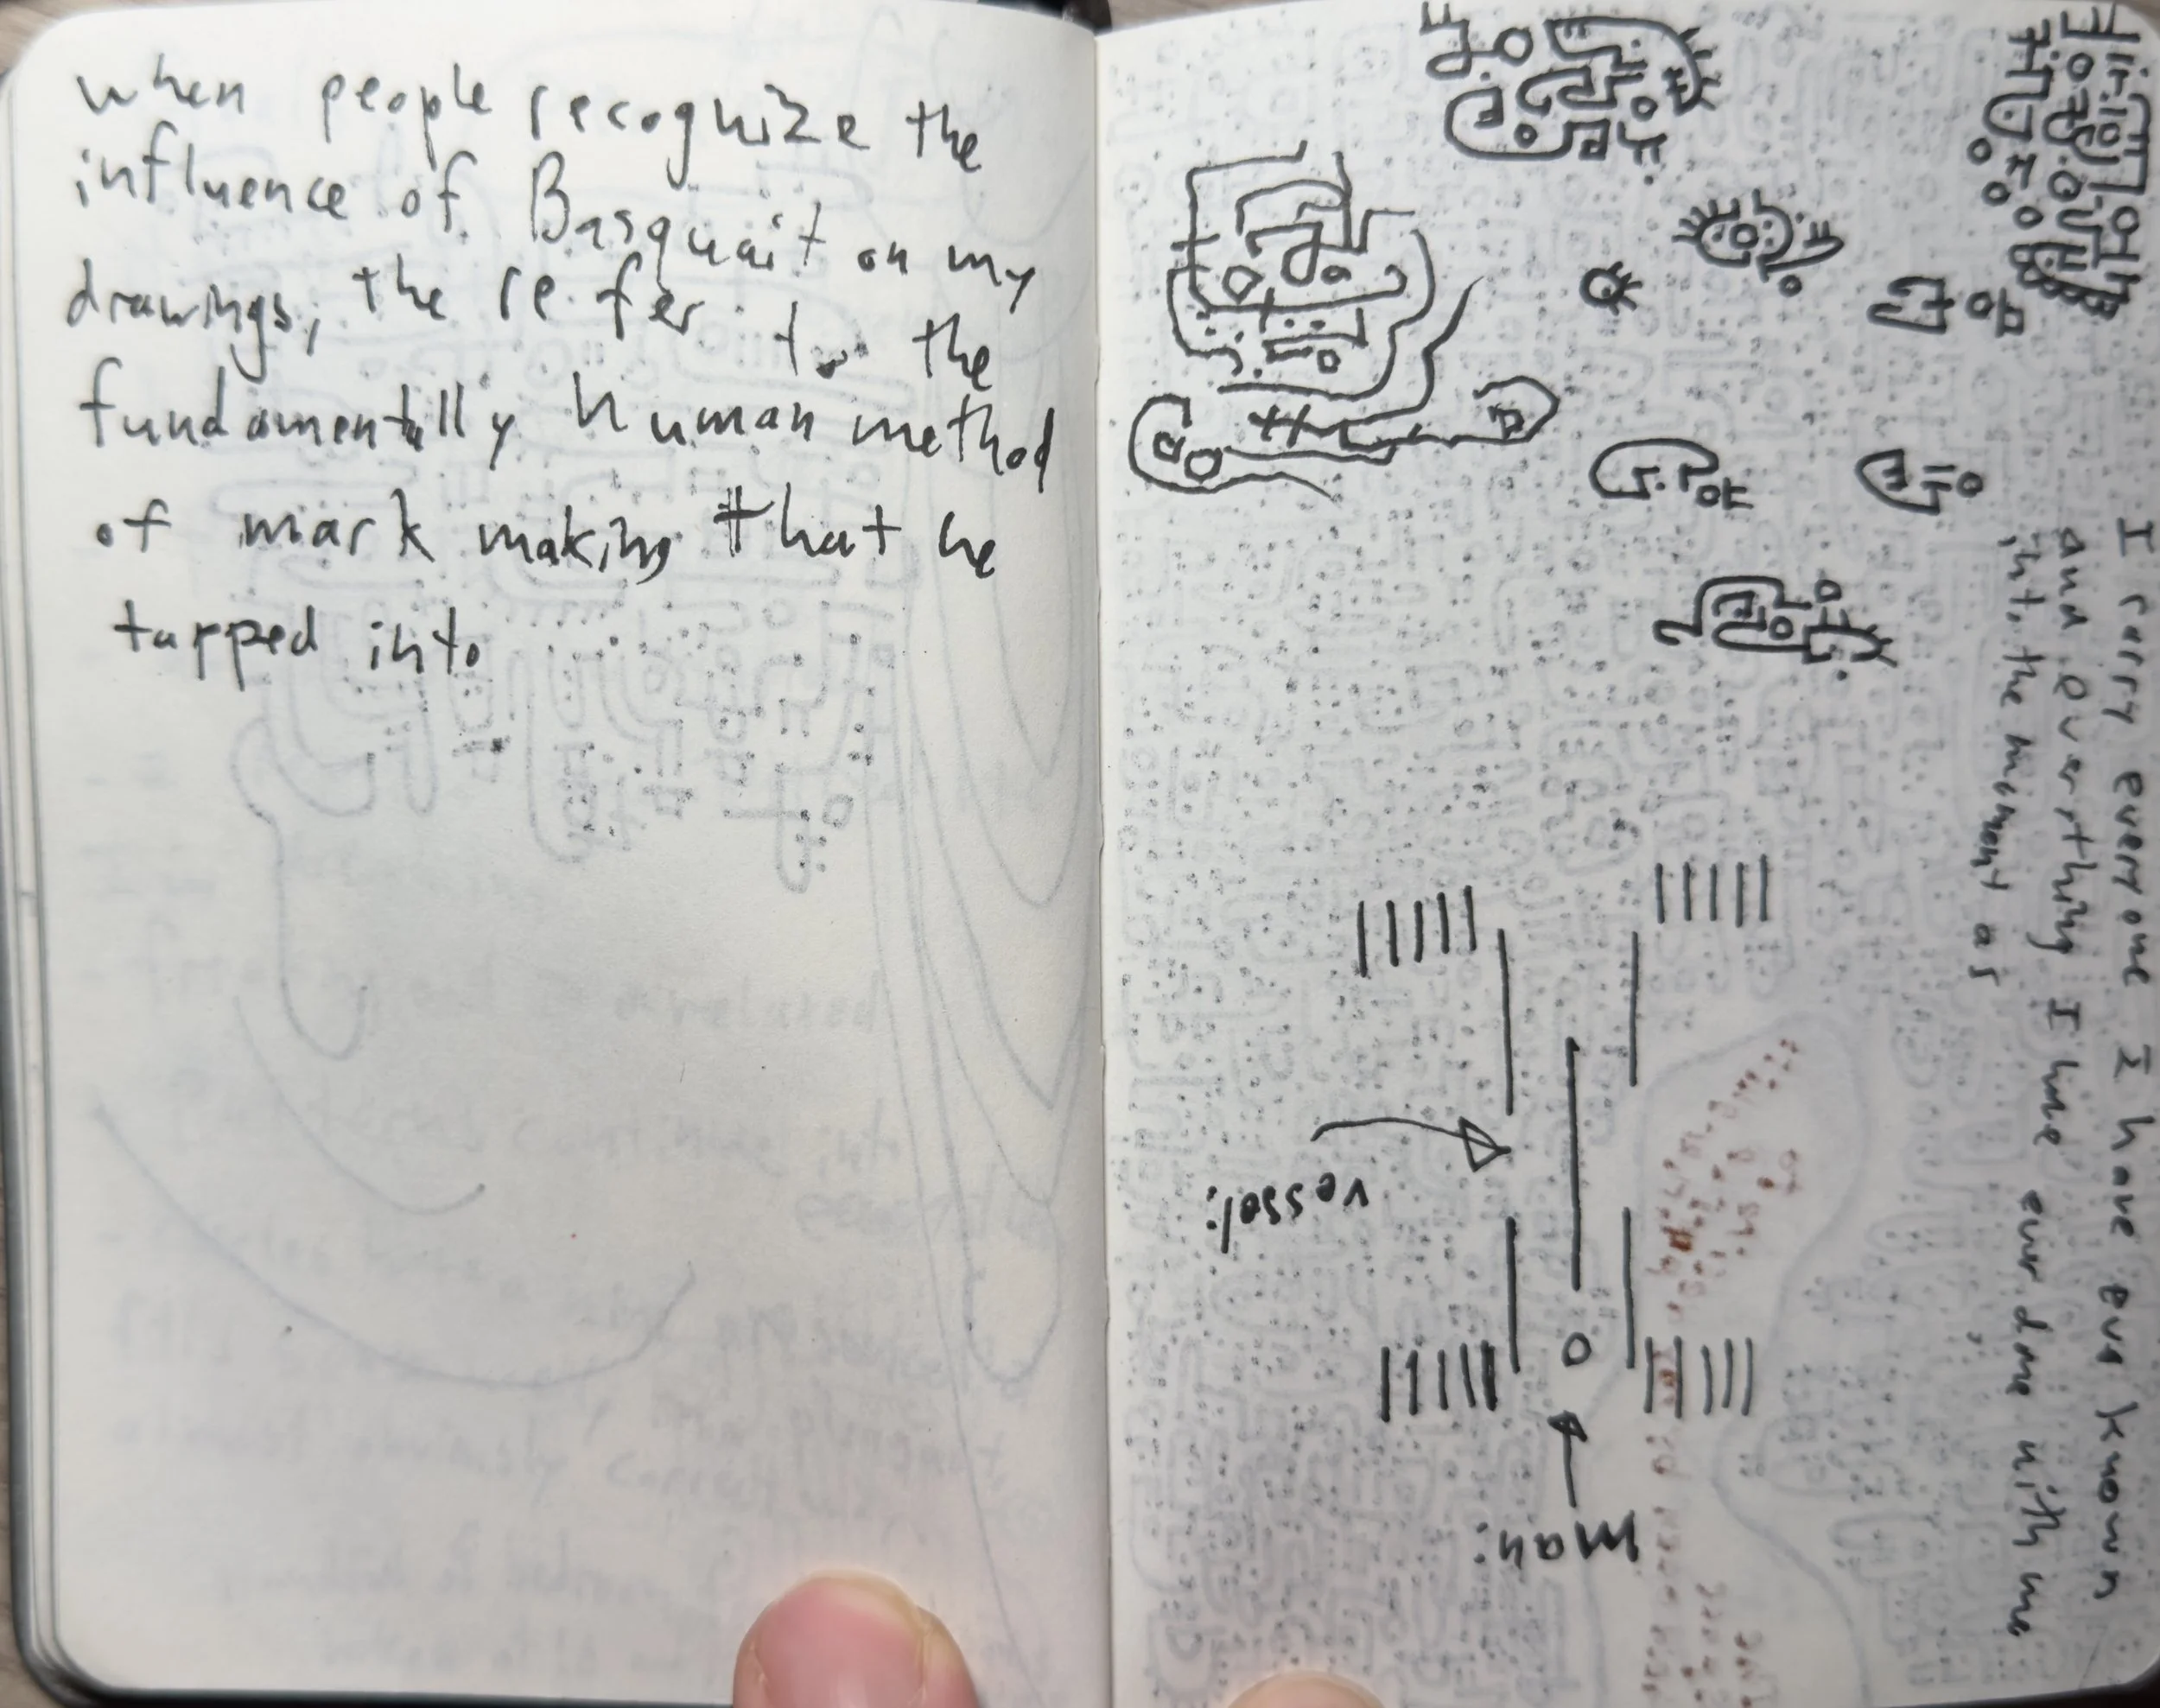 when people recognize the
influence of Basquait on my
drawings, the refer to the
fundamentally human method
of mark making that he
tapped into
I carry everyone I have ever known
and everything I have ever done with me
into the moment as
vessel:
man: